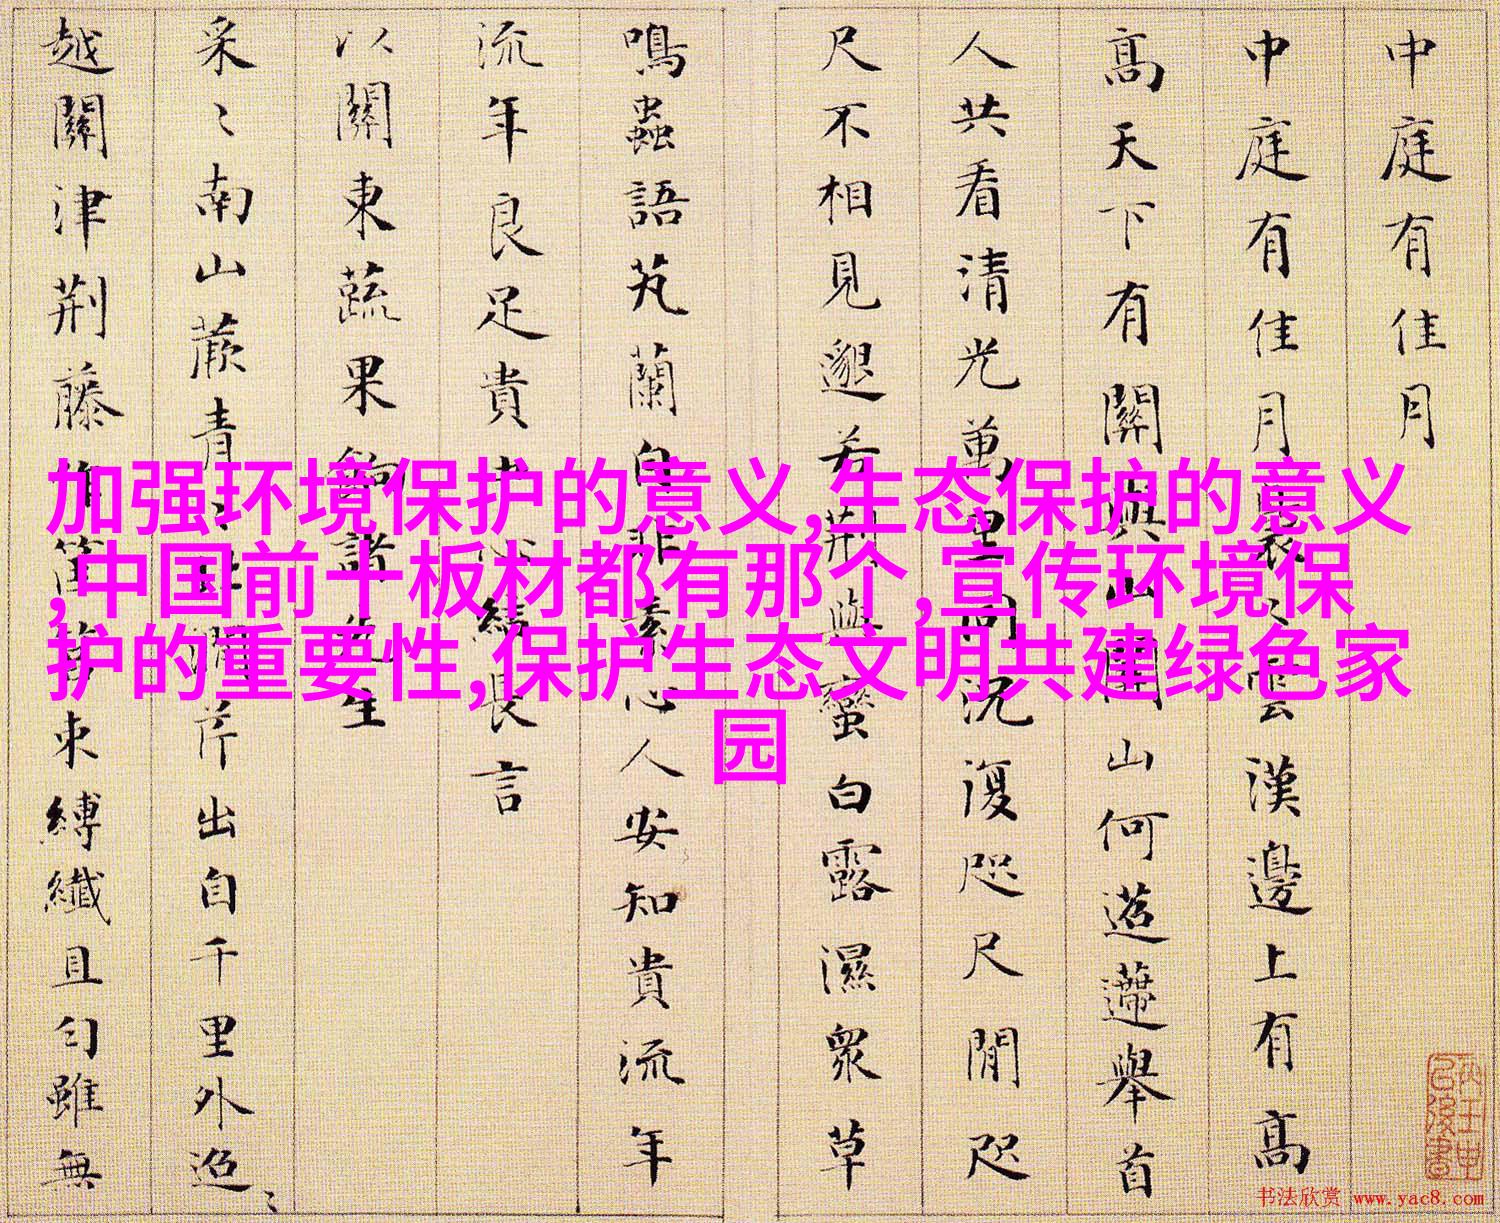 中庭有佳月
中庭有佳月裊〻雲漢邊上有高
高天下有關與山關山何迢遰舉首
人共看清光萬里同沉復咫尺間咫
尺不相見邈若荆與蠻白露濕衆草
鳴蟲語芄蘭自非素心人安知貴流年
流年良足貴
結長言
以關東蔬果餉諸
生
采〻南山蕨青〻
芹出自千里外迢〻
越關津荆藤
束縛纖且匀雖無
加强环境保护的意义,生态保护的意义
,中国前十板材都有那个,宣传环境保
护的重要性,保护生态文明共建绿色家
园
书法欣赏 www.yac8.com